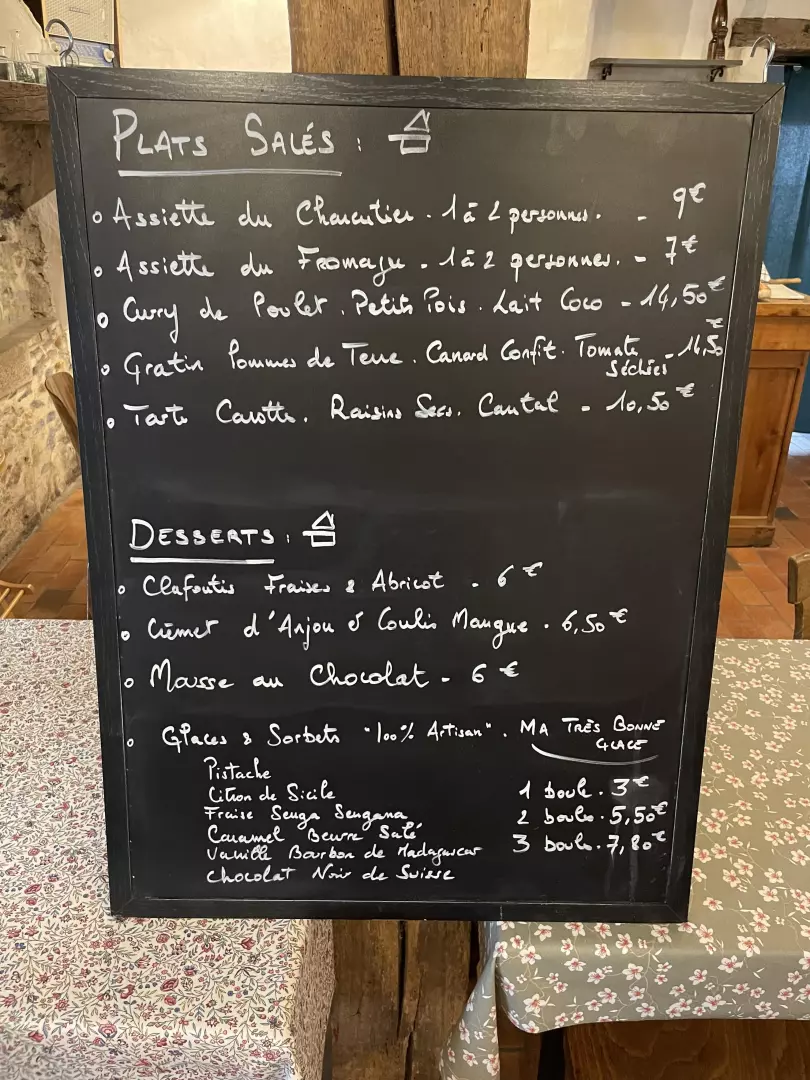 PLATS SALÉS :
Assiette du Charcutier . 1 à 2 personnes . - 9€
Assiette du Fromager . 1 à 2 personnes. - 7€
Curry de Poulet . Petits Pois . Lait Coco - 14,50€
Gratin Pommes de Terre . Canard Confit . Tomate Séchées - 14,50€
Tarte Carotte . Raisins Secs . Cantal - 10,50€
DESSERTS :
Clafoutis Fraises & Abricot - 6€
Crémet d'Anjou & Coulis Mangue . 6,50€
Mousse au Chocolat - 6€
Glaces & Sorbets "100% Artisan" . MA TRÈS BONNE GLACE
Pistache
Citron de Sicile 1 boule . 3€
Fraise Senga Sengana 2 boules . 5,50€
Caramel Beurre Salé 3 boules . 7,80€
Vanille Bourbon de Madagascar
Chocolat Noir de Suisse